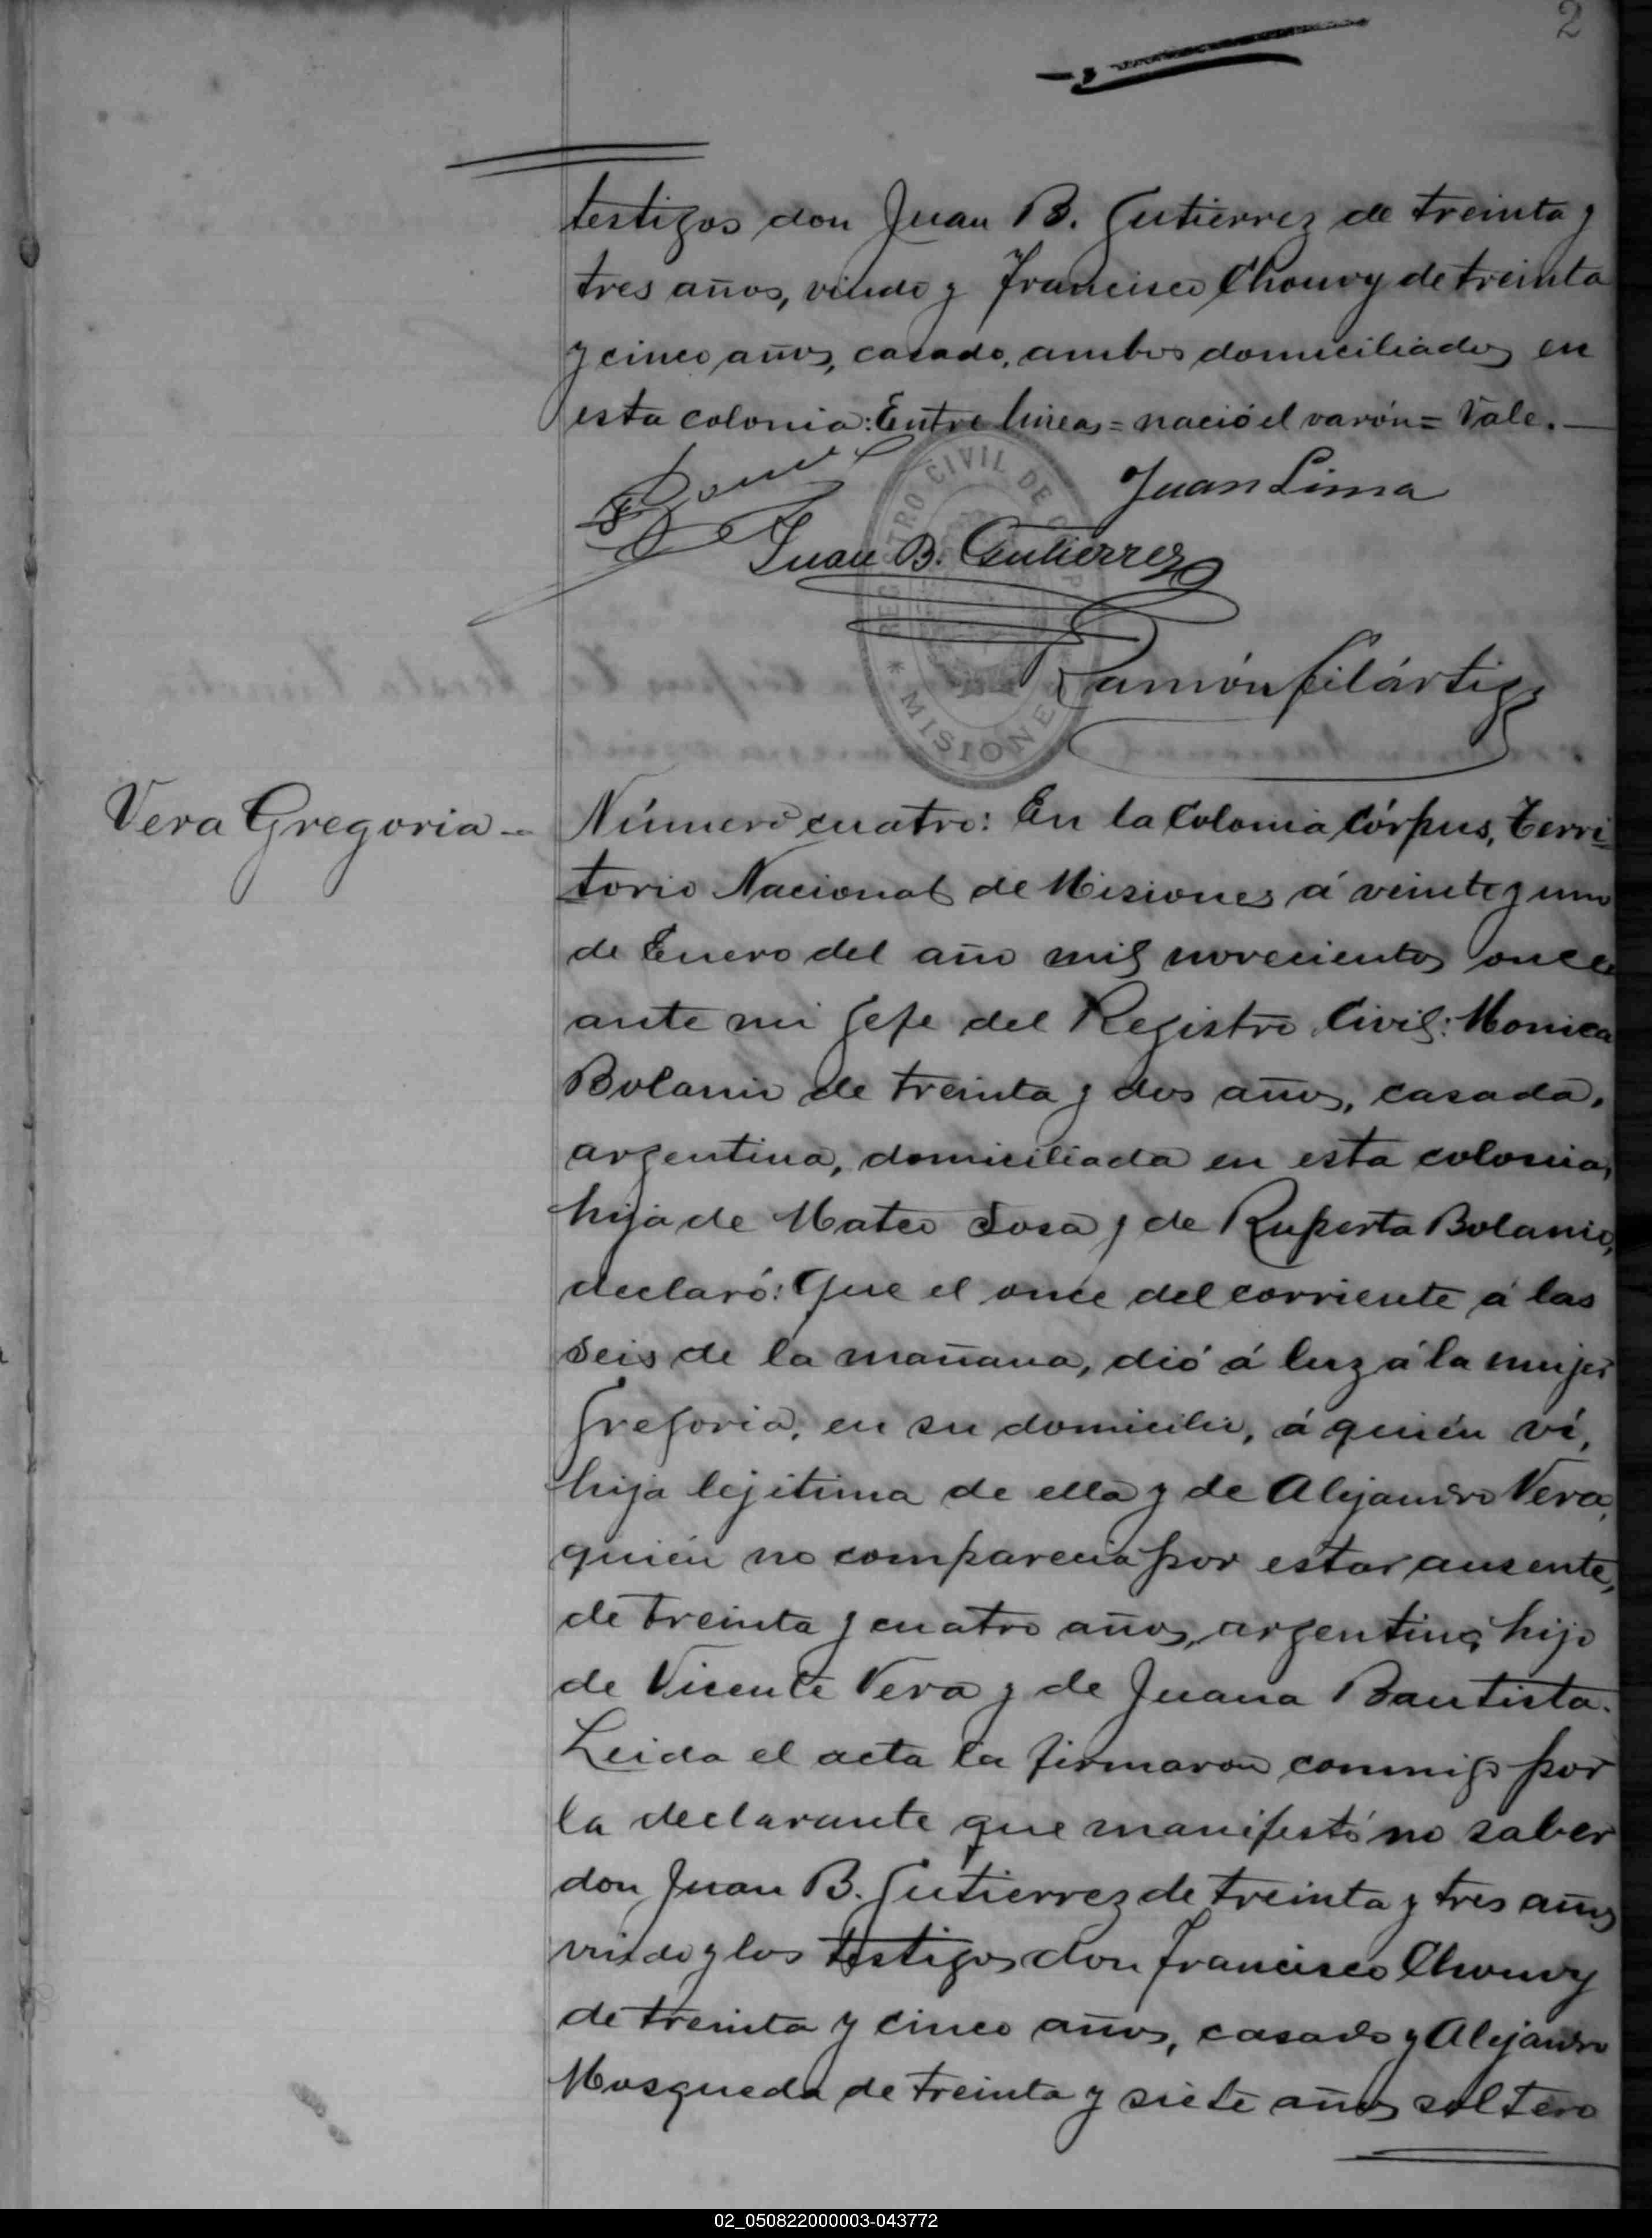 2
testigos don Juan B. Gutierrez de treinta y
tres años, viudo y Francisco Chouvy de treinta
y cinco años, casado, ambos domiciliados en
esta colonia: Entre lineas = nació el varón = Vale. —
Juan Lima
Juan B. Gutierrez
REGISTRO CIVIL DE CORPUS
* MISIONES *
Ramón Filártiga
Vera Gregoria -
Número cuatro: En la Colonia Córpus, Terri-
torio Nacional de Misiones á veinte y uno
de Enero del año mil novecientos once
ante mi Gefe del Registro Civil: Monica
Bolanio de treinta y dos años, casada,
argentina, domiciliada en esta colonia,
hija de Mateo Sosa y de Ruperta Bolanio,
declaró: Que el once del corriente á las
seis de la mañana, dió á luz á la mujer
Gregoria, en su domicilio, á quién ví,
hija lejitima de ella y de Alejandro Vera,
quién no comparecia por estar ausente,
de treinta y cuatro años, argentino, hijo
de Vicente Vera y de Juana Bautista.
Leida el acta la firmaron conmigo por
la declarante que manifestó no saber
don Juan B. Gutierrez de treinta y tres años
viudo y los testigos don Francisco Chouvy
de treinta y cinco años, casado y Alejandro
Mosqueda de treinta y siete años soltero
02_050822000003-043772